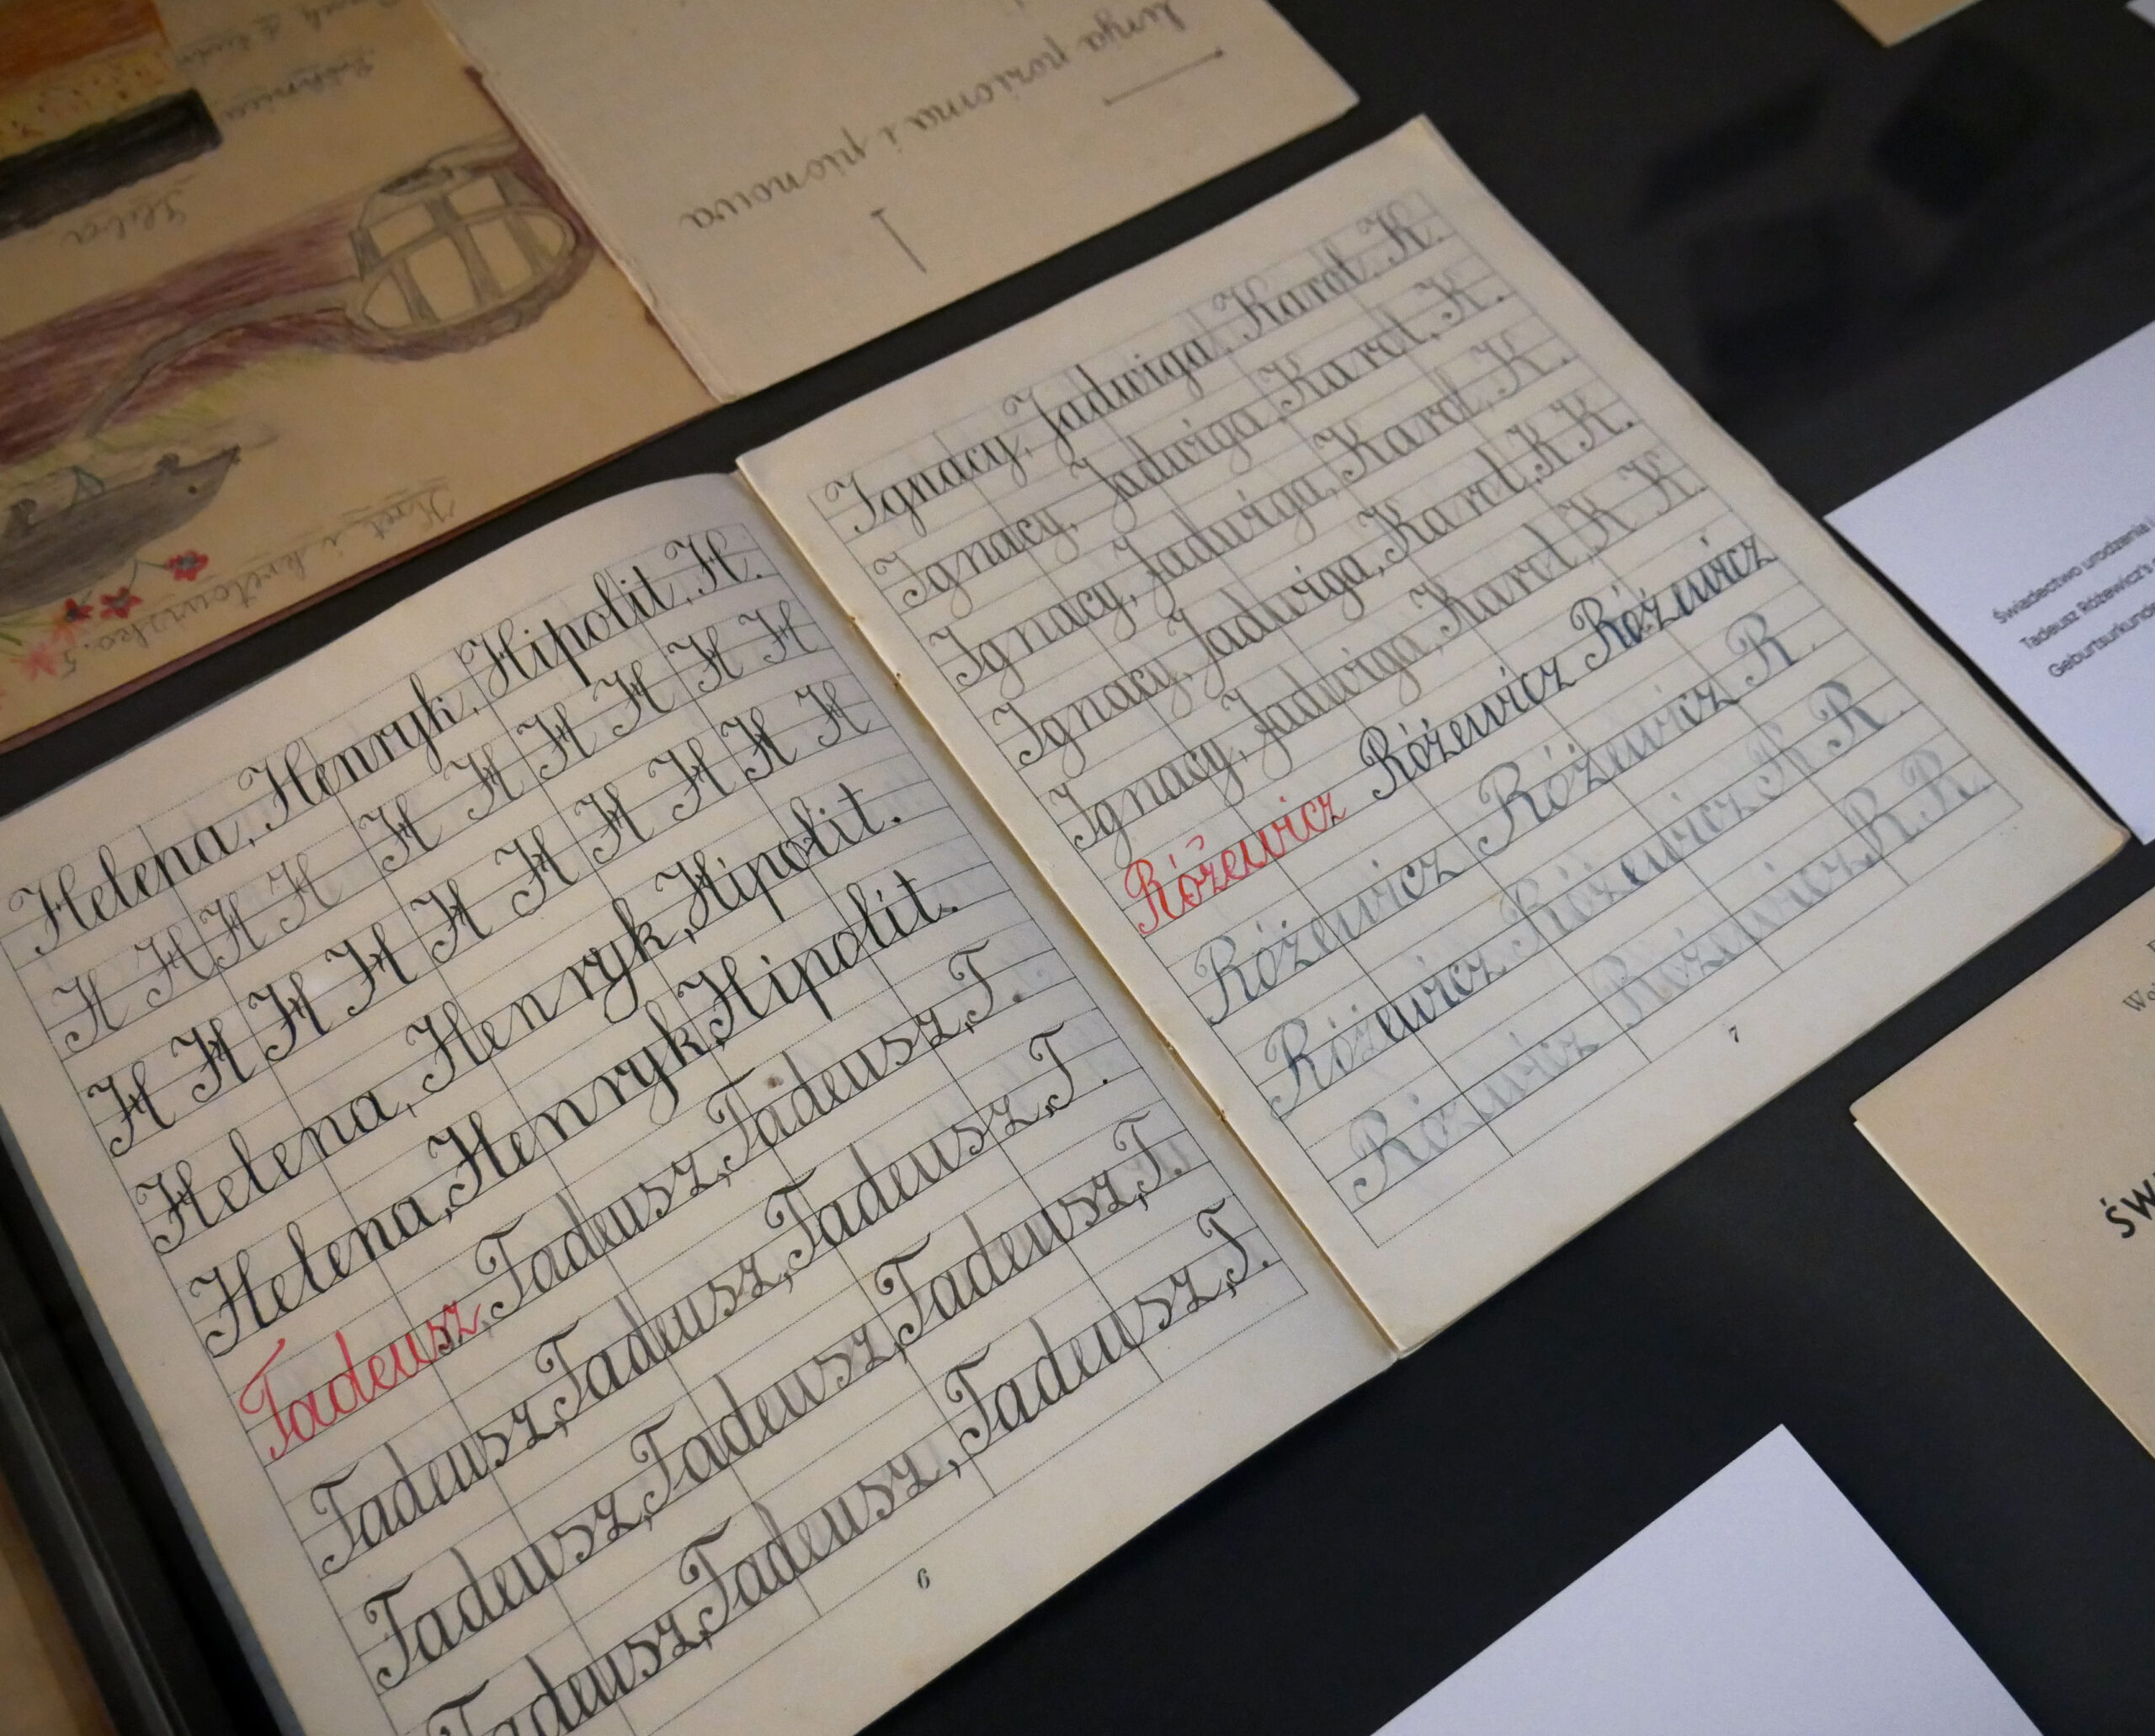 Helena, Henryk, Hipolit, H.
H H H H H H H H H H
H H H H H H H H H
Helena, Henryk, Hipolit.
Helena, Henryk, Hipolit.
Tadeusz, Tadeusz, Tadeusz, T.
Tadeusz, Tadeusz, Tadeusz, T.
Tadeusz, Tadeusz, Tadeusz, T.
Tadeusz, Tadeusz, Tadeusz, T.
6
Ignacy, Jadwiga, Karol, K.
Ignacy, Jadwiga, Karol, K.
Ignacy, Jadwiga, Karol, K.
Ignacy, Jadwiga, Karol, K K.
Ignacy, Jadwiga, Karol, K K.
Różewicz Różewicz Różewicz
Różewicz Różewicz R.
Różewicz Różewicz R R.
Różewicz Różewicz R. R.
7
linja pozioma i pionowa
Kret i kretowisko.
Świadectwo urodzenia
Tadeusz Różewicz's